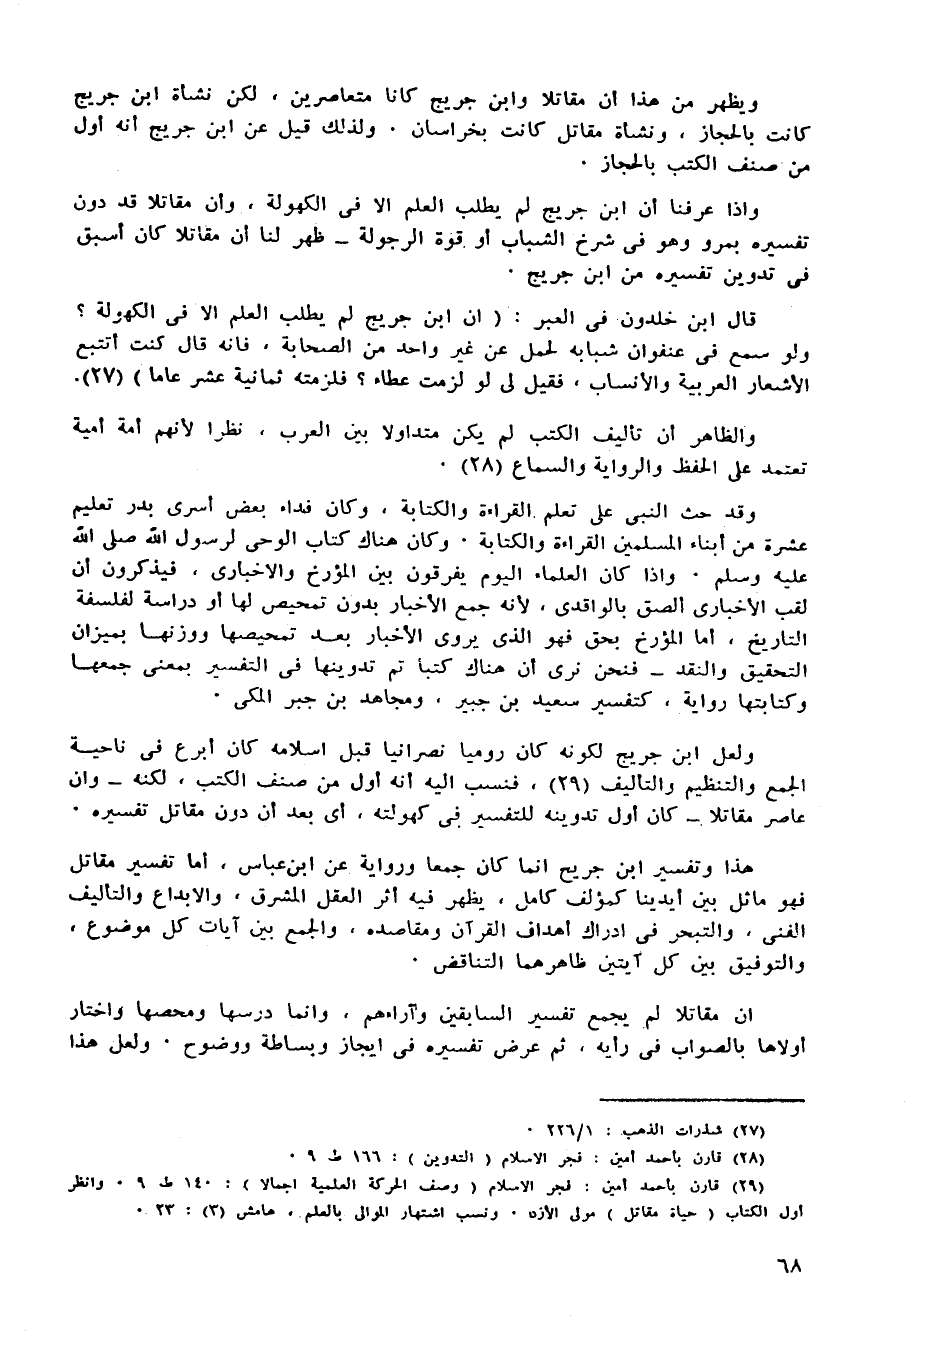 ويظهر من هذا أن مقاتلا وابن جريج كانا متعاصرين ، لكن نشأة ابن جريج
كانت بالحجاز ، ونشأة مقاتل كانت بخراسان ٠ ولذلك قيل عن ابن جريج أنه أول
من صنف الكتب بالحجاز ٠
واذا عرفنا أن ابن جريج لم يطلب العلم الا فى الكهولة ، وأن مقاتلا قد دون
تفسيره بمرو وهو فى شرخ الشباب أو قوة الرجولة ــ ظهر لنا أن مقاتلا كان أسبق
فى تدوين تفسيره من ابن جريج ٠
قال ابن خلدون فى العبر : ( ان ابن جريج لم يطلب العلم الا فى الكهولة ؟
ولو سمع فى عنفوان شبابه لحمل عن غير واحد من الصحابة ، فانه قال كنت أتتبع
الأشعار العربية والأنساب ، فقيل لى لو لزمت عطاء ؟ فلزمته ثمانية عشر عاما ) (٢٧).
والظاهر أن تأليف الكتب لم يكن متداولا بين العرب ، نظرا لأنهم أمة أمية
تعتمد على الحفظ والرواية والسماع (٢٨) ٠
وقد حث النبى على تعلم القراءة والكتابة ، وكان فداء بعض أسرى بدر تعليم
عشرة من أبناء المسلمين القراءة والكتابة ٠ وكان هناك كتاب الوحى لرسول الله صلى الله
عليه وسلم ٠ واذا كان العلماء اليوم يفرقون بين المؤرخ والاخبارى ، فيذكرون أن
لقب الأخبارى ألصق بالواقدى ، لأنه جمع الأخبار بدون تمحيص لها أو دراسة لفلسفة
التاريخ ، أما المؤرخ بحق فهو الذى يروى الأخبار بعد تمحيصها ووزنها بميزان
التحقيق والنقد ــ فنحن نرى أن هناك كتبا تم تدوينها فى التفسير بمعنى جمعها
وكتابتها رواية ، كتفسير سعيد بن جبير ، ومجاهد بن جبر المكى ٠
ولعل ابن جريج لكونه كان روميا نصرانيا قبل اسلامه كان أبرع فى ناحية
الجمع والتنظيم والتأليف (٢٩) ، فنسب اليه أنه أول من صنف الكتب ، لكنه ــ وان
عاصر مقاتلا ــ كان أول تدوينه للتفسير فى كهولته ، أى بعد أن دون مقاتل تفسيره ٠
هذا وتفسير ابن جريج انما كان جمعا ورواية عن ابن عباس ، أما تفسير مقاتل
فهو ماثل بين أيدينا كمؤلف كامل ، يظهر فيه أثر العقل المشرق ، والابداع والتأليف
الفنى ، والتبحر فى ادراك أهداف القرآن ومقاصده ، والجمع بين آيات كل موضوع ،
والتوفيق بين كل آيتين ظاهرهما التناقض ٠
ان مقاتلا لم يجمع تفسير السابقين وآراءهم ، وانما درسها ومحصها واختار
أولاها بالصواب فى رأيه ، ثم عرض تفسيره فى ايجاز وبساطة ووضوح ٠ ولعل هذا
(٢٧) شذرات الذهب : ٢٢٦/١ ٠
(٢٨) قارن بأحمد أمين : فجر الاسلام ( التدوين ) : ١٦٦ ط ٩ ٠
(٢٩) قارن بأحمد أمين : فجر الاسلام ( وصف الحركة العلمية اجمالا ) : ١٤٠ ط ٩ ٠ وانظر
أول الكتاب ( حياة مقاتل ) مولى الأزد ٠ ونسب اشتهار الموالى بالعلم ، هامش (٣) : ٢٣ ٠
٦٨